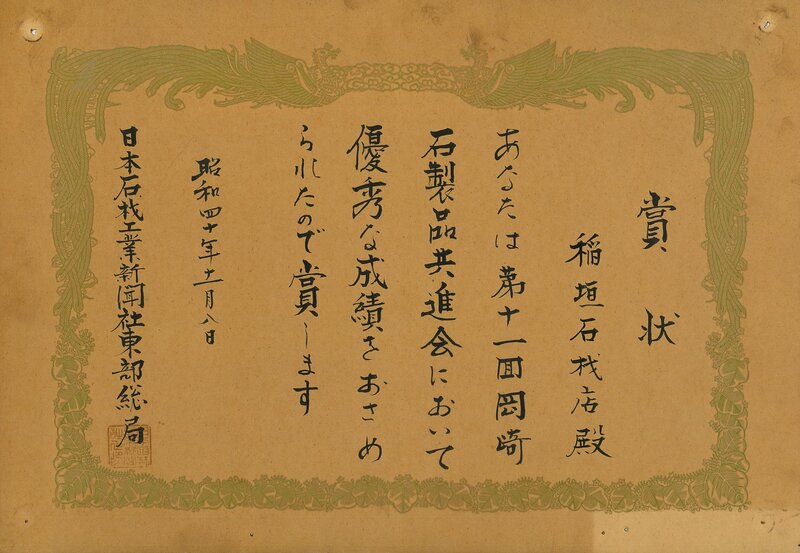 賞状
稲垣石材店殿
あなたは第十一回岡崎
石製品共進会において
優秀な成績をおさめ
られたので賞します
昭和四十年十一月八日
日本石材工業新聞社東部総局